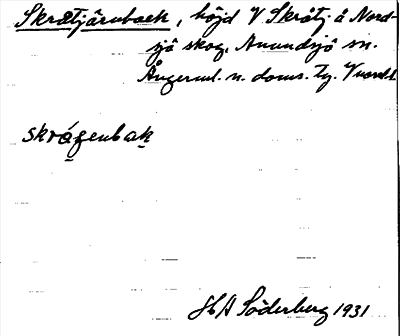 Skråtjärnback, höjd V Skråtj. å Nord-
sjö skog, Anundsjö sn.
Ångerml. n. doms. Tg.
skrágenbak
H A Söderberg 1931